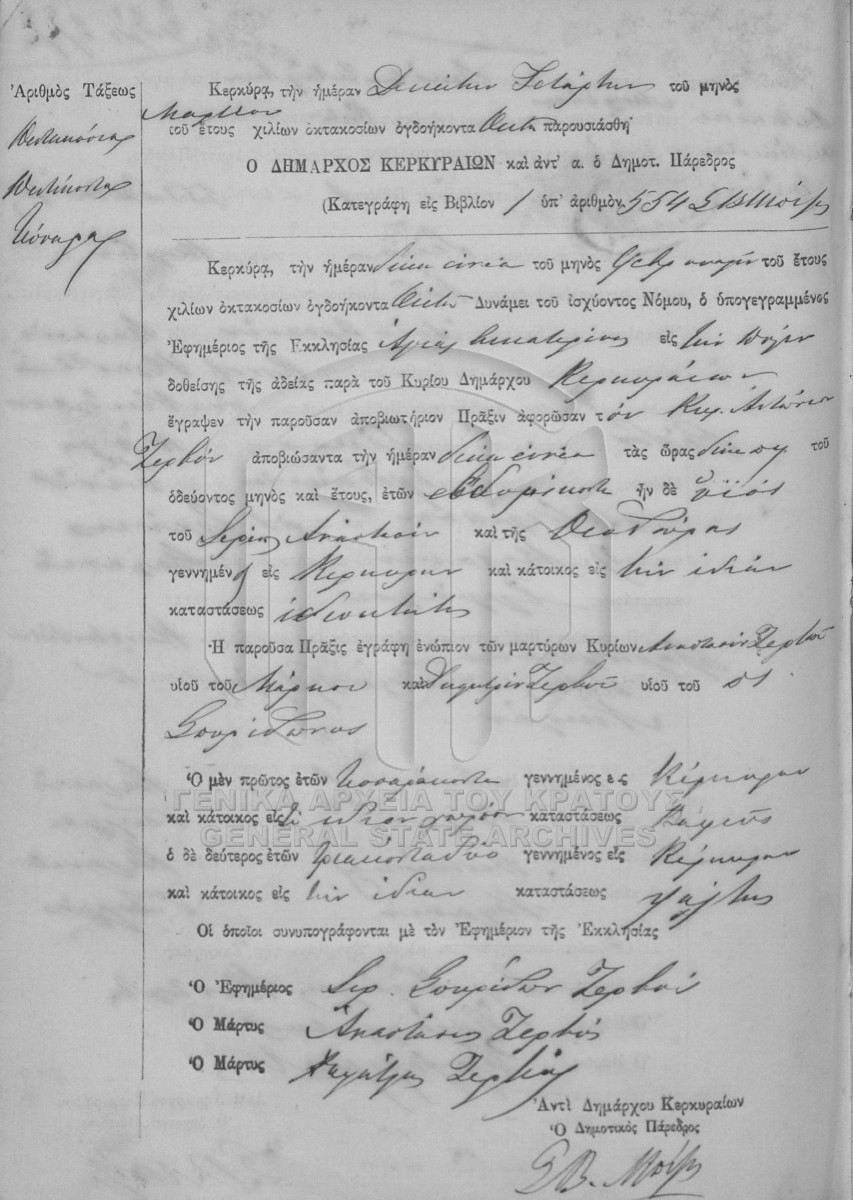 Ἀριθμὸς Τάξεως
Πεντακόσια
Πεντήκοντα
Τέσσαρα
Κερκύρα, τὴν ἡμέραν Δεκάτην Τετάρτην τοῦ μηνὸς
Μαρτίου
τοῦ ἔτους χιλίων ὀκτακοσίων ὀγδοήκοντα Ὀκτὼ παρουσιάσθη
Ὁ ΔΗΜΑΡΧΟΣ ΚΕΡΚΥΡΑΙΩΝ καὶ ἀντ' α. ὁ Δημοτ. Πάρεδρος
(Κατεγράφη εἰς Βιβλίον 1 ὑπ' ἀριθμὸν. 554
Κερκύρα, τὴν ἡμέραν δέκα ἐννέα τοῦ μηνὸς τοῦ ἔτους
χιλίων ὀκτακοσίων ὀγδοήκοντα Ὀκτὼ Δυνάμει τοῦ ἰσχύοντος Νόμου, ὁ ὑπογεγραμμένος
Ἐφημέριος τῆς Ἐκκλησίας Ἁγίας Αἰκατερίνης εἰς τὴν Πόλιν
δοθείσης τῆς ἀδείας παρὰ τοῦ Κυρίου Δημάρχου Κερκυραίων
ἔγραψεν τὴν παροῦσαν ἀποβιωτήριον Πρᾶξιν ἀφορῶσαν τὸν Κυρ. Ἀντώνιον
Ζερβὸν ἀποβιώσαντα τὴν ἡμέραν δέκα ἐννέα τὰς ὥρας δέκα πμ τοῦ
ὁδεύοντος μηνὸς καὶ ἔτους, ἐτῶν ἑβδομήκοντα ἦν δὲ υἱὸς
τοῦ Ἀναστασίου καὶ τῆς Θεοδώρας
γεννημέν εἰς Κέρκυραν καὶ κάτοικος εἰς τὴν ἰδίαν
καταστάσεως ἰδιοκτήτης
Ἡ παροῦσα Πρᾶξις ἐγράφη ἐνώπιον τῶν μαρτύρων Κυρίων Ἀναστασίου Ζερβοῦ
υἱοῦ τοῦ Μάρκου καὶ Δημητρίου Ζερβοῦ υἱοῦ τοῦ
Σπυρίδωνος
Ὁ μὲν πρῶτος ἐτῶν τεσσαράκοντα γεννημένος εἰς Κέρκυραν
καὶ κάτοικος εἰς καταστάσεως
ὁ δὲ δεύτερος ἐτῶν τριάκοντα δύο γεννημένος εἰς Κέρκυραν
καὶ κάτοικος εἰς τὴν ἰδίαν καταστάσεως ψάλτης
Οἱ ὁποῖοι συνυπογράφονται μὲ τὸν Ἐφημέριον τῆς Ἐκκλησίας
Ὁ Ἐφημέριος Ἱερ. Σπυρίδων Ζερβὸς
Ὁ Μάρτυς Ἀναστάσιος Ζερβὸς
Ὁ Μάρτυς Δημήτριος Ζερβὸς
Ἀντὶ Δημάρχου Κερκυραίων
Ὁ Δημοτικὸς Πάρεδρος
ΓΕΝΙΚΑ ΑΡΧΕΙΑ ΤΟΥ ΚΡΑΤΟΥΣ
GENERAL STATE ARCHIVES